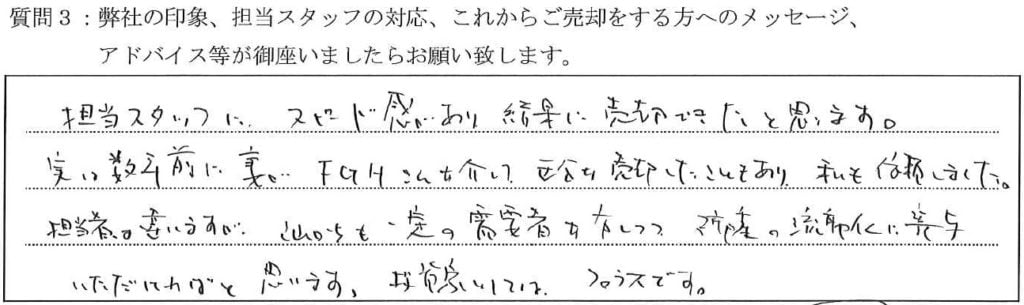 質問3：弊社の印象、担当スタッフの対応、これからご売却をする方へのメッセージ、
アドバイス等が御座いましたらお願い致します。
担当スタッフに、スピード感があり 結果に売却できたと思います。
実は数年前に妻が FGHさんを介して 売却したこともあり 私も依頼しました。
担当者は違いますが、これからも一定の需要者を有しつつ 資産の流動化に寄与
いただければと思います。 としては、プラスです。